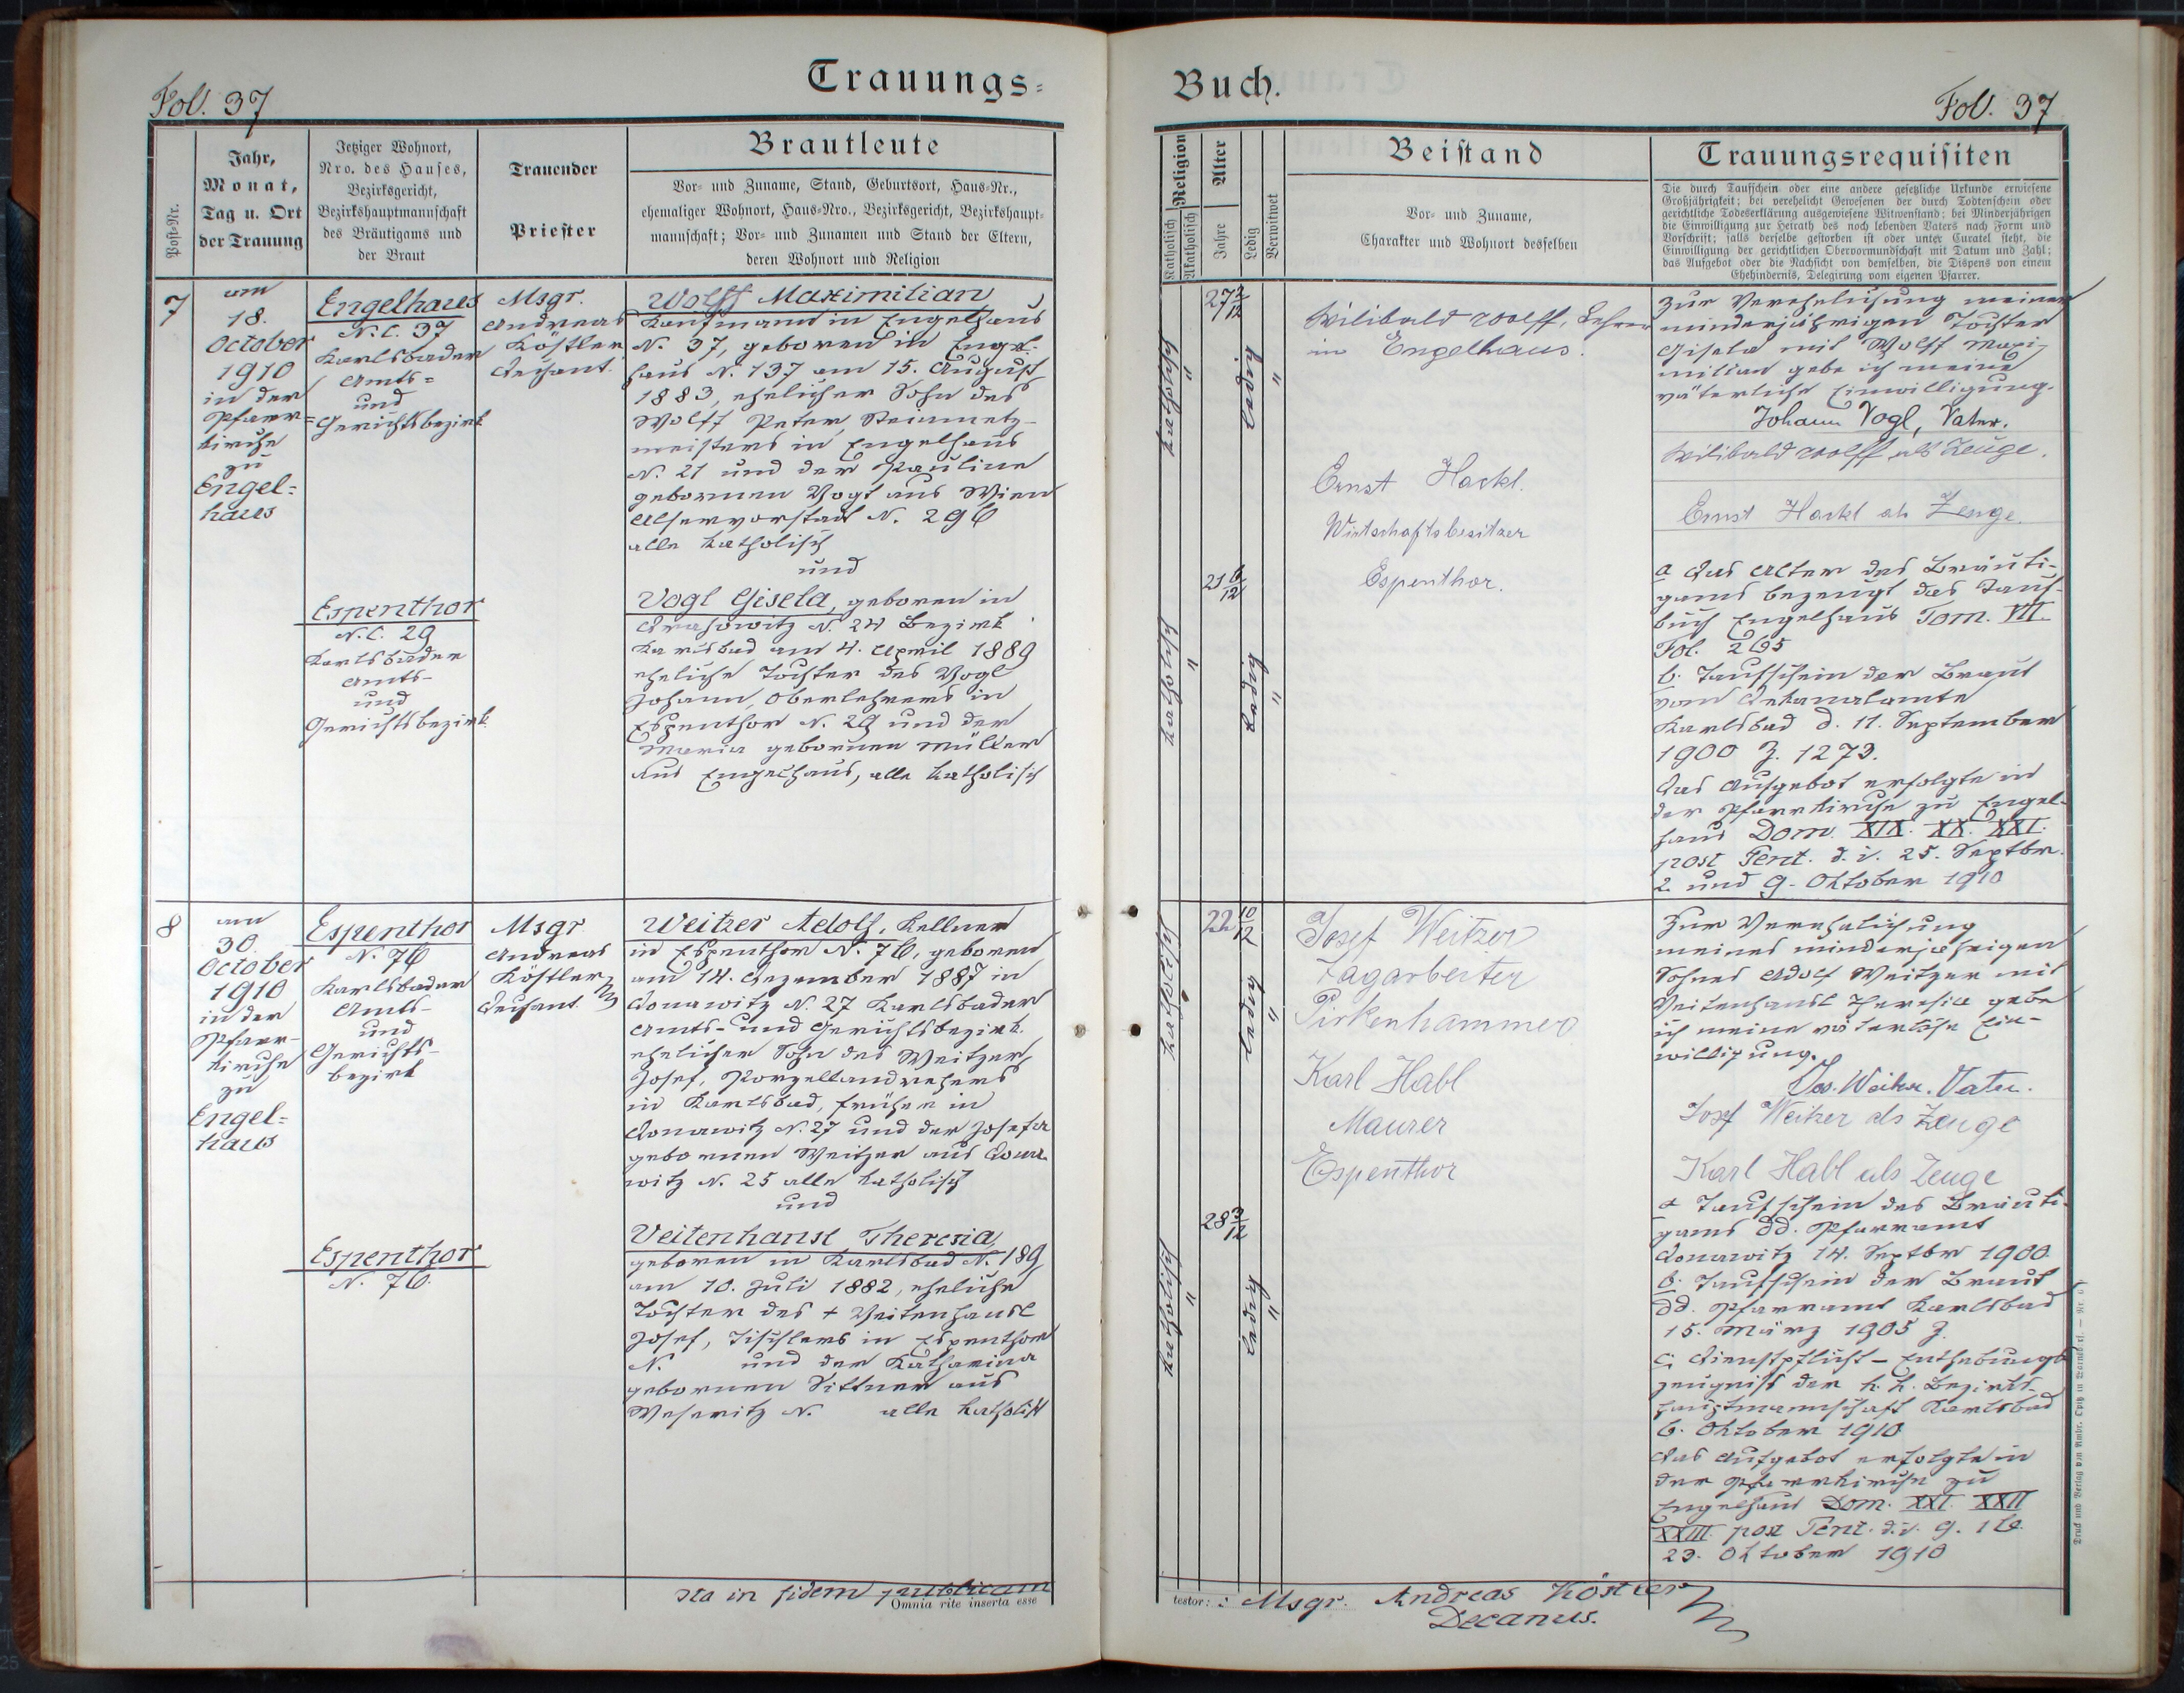 Trauungs-
Fol. 37
Post-Nr.
Jahr,
Monat,
Tag u. Ort
der Trauung
Jetziger Wohnort,
Nro. des Hauses,
Bezirksgericht,
Bezirkshauptmannschaft
des Bräutigams und
der Braut
Trauender
Priester
Brautleute
Vor- und Zuname, Stand, Geburtsort, Haus-Nr.,
ehemaliger Wohnort, Haus-Nro., Bezirksgericht, Bezirkshaupt-
mannschaft; Vor- und Zunamen und Stand der Eltern,
deren Wohnort und Religion
7
am
18.
October
1910
in der
Pfarr-
kirche
zu
Engel-
haus
Engelhaus
N.C. 37
Karlsbader
Amts-
und
Gerichtsbezirk
Msgr.
Andreas
Köstler
Dechant.
Wolff Maximilian
Kaufmann in Engelhaus
N. 37, geboren in Engel-
haus N. 137 am 15. August
1883, ehelicher Sohn des
Wolff Peter Steinmetz-
meisters in Engelhaus
N. 21 und der Pauline
gebornen Vogt aus Wien
Alservorstadt N. 296
alle katholisch
und
Espenthor
N.C. 29
Karlsbader
Amts-
und
Gerichtsbezirk
Vogl Gisela, geboren in
N. 24 Bezirk
Karlsbad am 4. April 1889
eheliche Tochter des Vogl
Johann, Oberlehrers in
Espenthor N. 29 und der
Maria gebornen Müller
aus Engelhaus, alle katholisch
8
am
30.
October
1910
in der
Pfarr-
kirche
zu
Engel-
haus
Espenthor
N. 76
Karlsbader
Amts-
und
Gerichts-
bezirk
Msgr
Andreas
Köstler
Dechant.
Weitzer Adolf, Kellner
in Espenthor N. 76, geboren
am 14. Dezember 1887 in
Donawitz N. 27 Karlsbader
Amts- und Gerichtsbezirk
ehelicher Sohn des Weitzer
Josef, Porzellandrehers
in Karlsbad, früher in
Donawitz N. 27 und der Josefa
gebornen Weitzer aus Dona-
witz N. 25 alle katholisch
und
Espenthor
N. 76.
Veitenhansl Theresia,
geboren in Karlsbad N. 189
am 10. Juli 1882, eheliche
Tochter des + Veitenhansl
Josef, Tischlers in Espenthor
N. und der Katharina
gebornen Sittner aus
N. alle katholisch
Ita in fidem publicam
Omnia rite inserta esse
Buch.
Fol. 37
Religion
Katholisch
Akatholisch
Alter
Jahre
Ledig
Verwitwet
Beistand
Vor- und Zuname,
Charakter und Wohnort desselben
Trauungsrequisiten
Die durch Taufschein oder eine andere gesetzliche Urkunde erwiesene
Großjährigkeit; bei verehelicht Gewesenen der durch Todtenschein oder
gerichtliche Todeserklärung ausgewiesene Witwenstand; bei Minderjährigen
die Einwilligung zur Heirath des noch lebenden Vaters nach Form und
Vorschrift; falls derselbe gestorben ist oder unter Curatel steht, die
Einwilligung der gerichtlichen Obervormundschaft mit Datum und Zahl;
das Aufgebot oder die Nachsicht von demselben, die Dispens von einem
Ehehindernis, Delegirung vom eigenen Pfarrer.
katholisch
"
27 2/12
ledig
"
Wilibald Wolff, Lehrer
in Engelhaus.
Ernst Hackl.
Wirtschaftsbesitzer
Espenthor.
katholisch
"
21 6/12
Ledig
"
Zur Verehelichung meiner
minderjährigen Tochter
Gisela mit Wolff Maxi-
milian gebe ich meine
väterliche Einwilligung.
Johann Vogl, Vater.
Wilibald Wolff als Zeuge.
Ernst Hackl als Zeuge.
a Das Alter des Bräuti-
gams bezeugt das Tauf-
buch Engelhaus Tom. VII.
Fol. 265
b. Taufschein der Braut
vom Dekanalamte
Karlsbad d. 11. September
1900 Z. 1273.
Das Aufgebot erfolgte in
der Pfarrkirche zu Engel-
haus Dom. XIX. XX. XXI.
post Pent. d. i. 25. Septbr.
2. und 9. Oktober 1910
katholisch
"
22 10/12
ledig
"
Josef Weitzer
Tagarbeiter
Pirkenhammer
Karl Habl
Maurer
Espenthor
katholisch
"
28 3/12
ledig
"
Zur Verehelichung
meines minderjährigen
Sohnes Adolf Weitzer mit
Veitenhansl Theresia gebe
ich meine väterliche Ein-
willigung.
Jos. Weitzer. Vater.
Josef Weitzer als Zeuge
Karl Habl als Zeuge
a Taufschein des Bräuti-
gams dd. Pfarramt
Donawitz 14. Septbr 1900.
b. Taufschein der Braut
dd. Pfarramt Karlsbad
15. März 1905 Z.
c. Dienstpflicht-Enthebungs
zeugniß der k. k. Bezirks-
hauptmannschaft Karlsbad
6. Oktober 1910
Das Aufgebot erfolgte in
der Pfarrkirche zu
Engelhaus Dom. XXI. XXII
XXIII. post Pent. d. i. 9. 16.
23. Oktober 1910
testor: : Msgr. Andreas Köstler
Decanus.